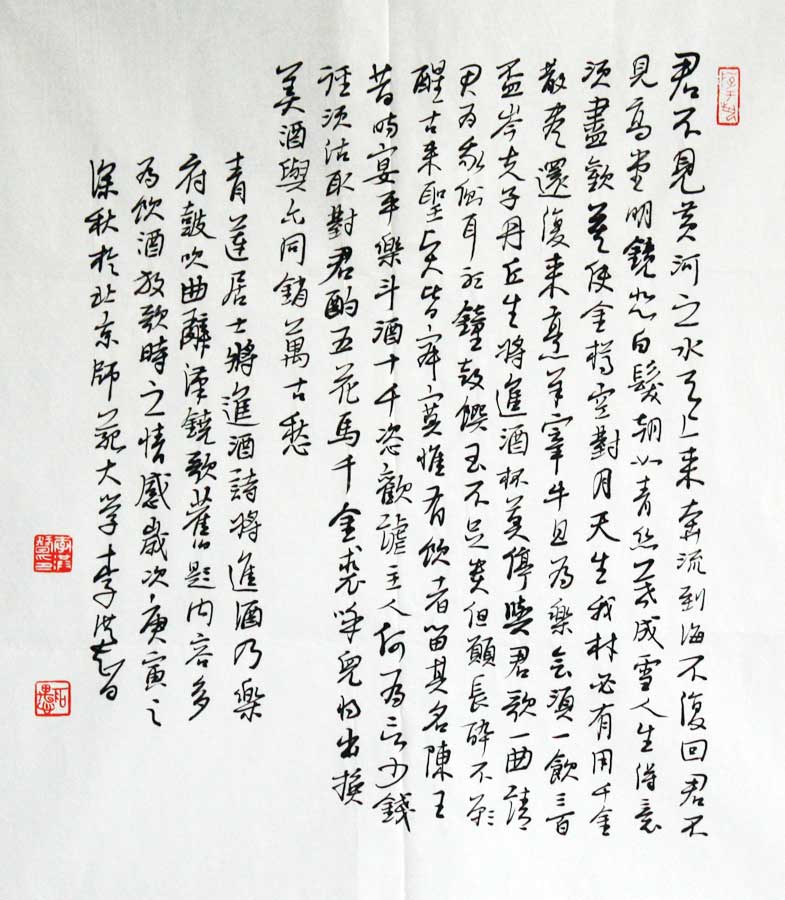 君不見黃河之水天上来奔流到海不復回君不
見高堂明鏡悲白髮朝如青丝暮成雪人生得意
须盡歡莫使金樽空對月天生我材必有用千金
散尽還復来烹羊宰牛且为樂会須一飲三百
盃岑夫子丹丘生将進酒杯莫停與君歌一曲請
君为我倾耳听鐘鼓饌玉不足贵但願長醉不愿
醒古来聖贤皆寂寞惟有飲者留其名陳王
昔時宴平樂斗酒十千恣歡謔主人何为言少錢
径须沽取對君酌五花馬千金裘呼兒将出換
美酒與尔同銷萬古愁
青蓮居士將進酒詩將進酒乃樂
府鼓吹曲辭漢鐃歌舊題内容多
为飲酒放歌時之情感歲次庚寅之
深秋於北京師范大学李洪智